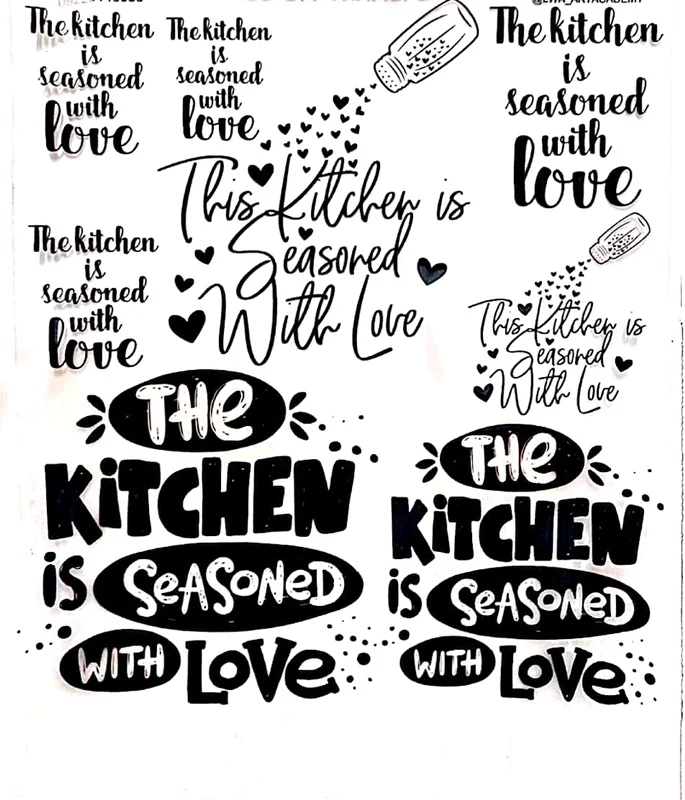 The kitchen
is
seasoned
with
love
The kitchen
is
seasoned
with
love
The kitchen
is
seasoned
with
love
This Kitchen is
Seasoned
With Love
The kitchen
is
seasoned
with
love
This Kitchen is
Seasoned
With Love
THe
KiTCHEN
iS SeASoNeD
WITH LoVe
THe
KiTCHEN
iS SeASoNeD
WITH LoVe